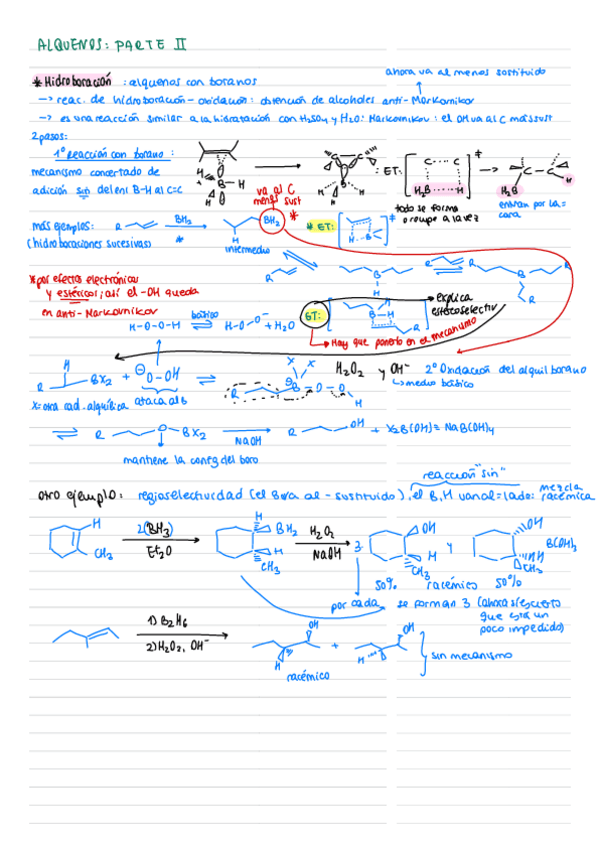 ALQUENOS: PARTE II
ahora va al menos sustituido
* Hidroboración: alquenos con boranos
→ reac. de hidroboración-oxidación: obtención de alcoholes anti-Markovnikov
→ es una reacción similar a la hidratación con H2SO4 y H2O: Markovnikov: el OH va al C más sust
2 pasos:
1º reacción con borano:
mecanismo concertado de
adición sin del enl B-H al C=C
va al C
menos sust
ET:
todo se forma
o rompe a la vez
entran por la =
cara
más ejemplos:
(hidroboraciones sucesivas)
R
BH3
*
BH2
H
intermedio
* ET:
* por efectos electrónicos
y estéricos; así el -OH queda
en anti-Markovnikov
ET:
explica
estereoselectiv
Hay que ponerlo en el mecanismo
H-O-O-H básico H-O-O⁻ + H2O
R BX2 + O-OH
H2O2 y OH⁻ 2º Oxidación del alquil borano
medio básico
X = otra rad. alquílica
ataca al B
R O BX2 NaOH R OH + X2B(OH) = NaB(OH)4
mantiene la config del boro
reacción "sin"
otro ejemplo: regioselectividad (el B va al - sustituido), el B, H van al = lado: mezcla
racémica
H
CH3
2(BH3)
Et2O
H
BH2
H
CH3
H2O2
NaOH
OH
H
CH3
y
OH
H
CH3
B(OH)3
50% racémico 50%
por cada
se forman 3
que está un
poco impedido)
1) B2H6
2) H2O2, OH⁻
OH
H
+
OH
H
racémico
sin mecanismo